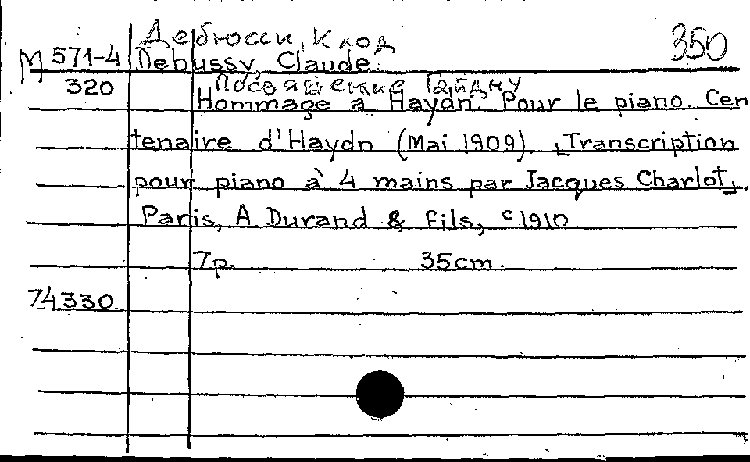 Дебюсси, Клод 350
М 571-4 Debussy, Claude.
Посвящение Гайдну
320 Hommage à Haydn. Pour le piano. Cen
tenaire d'Haydn (Mai 1909). [Transcription
pour piano à 4 mains par Jacques Charlot].
Paris, A Durand & fils, c1910
7p. 35cm
74330